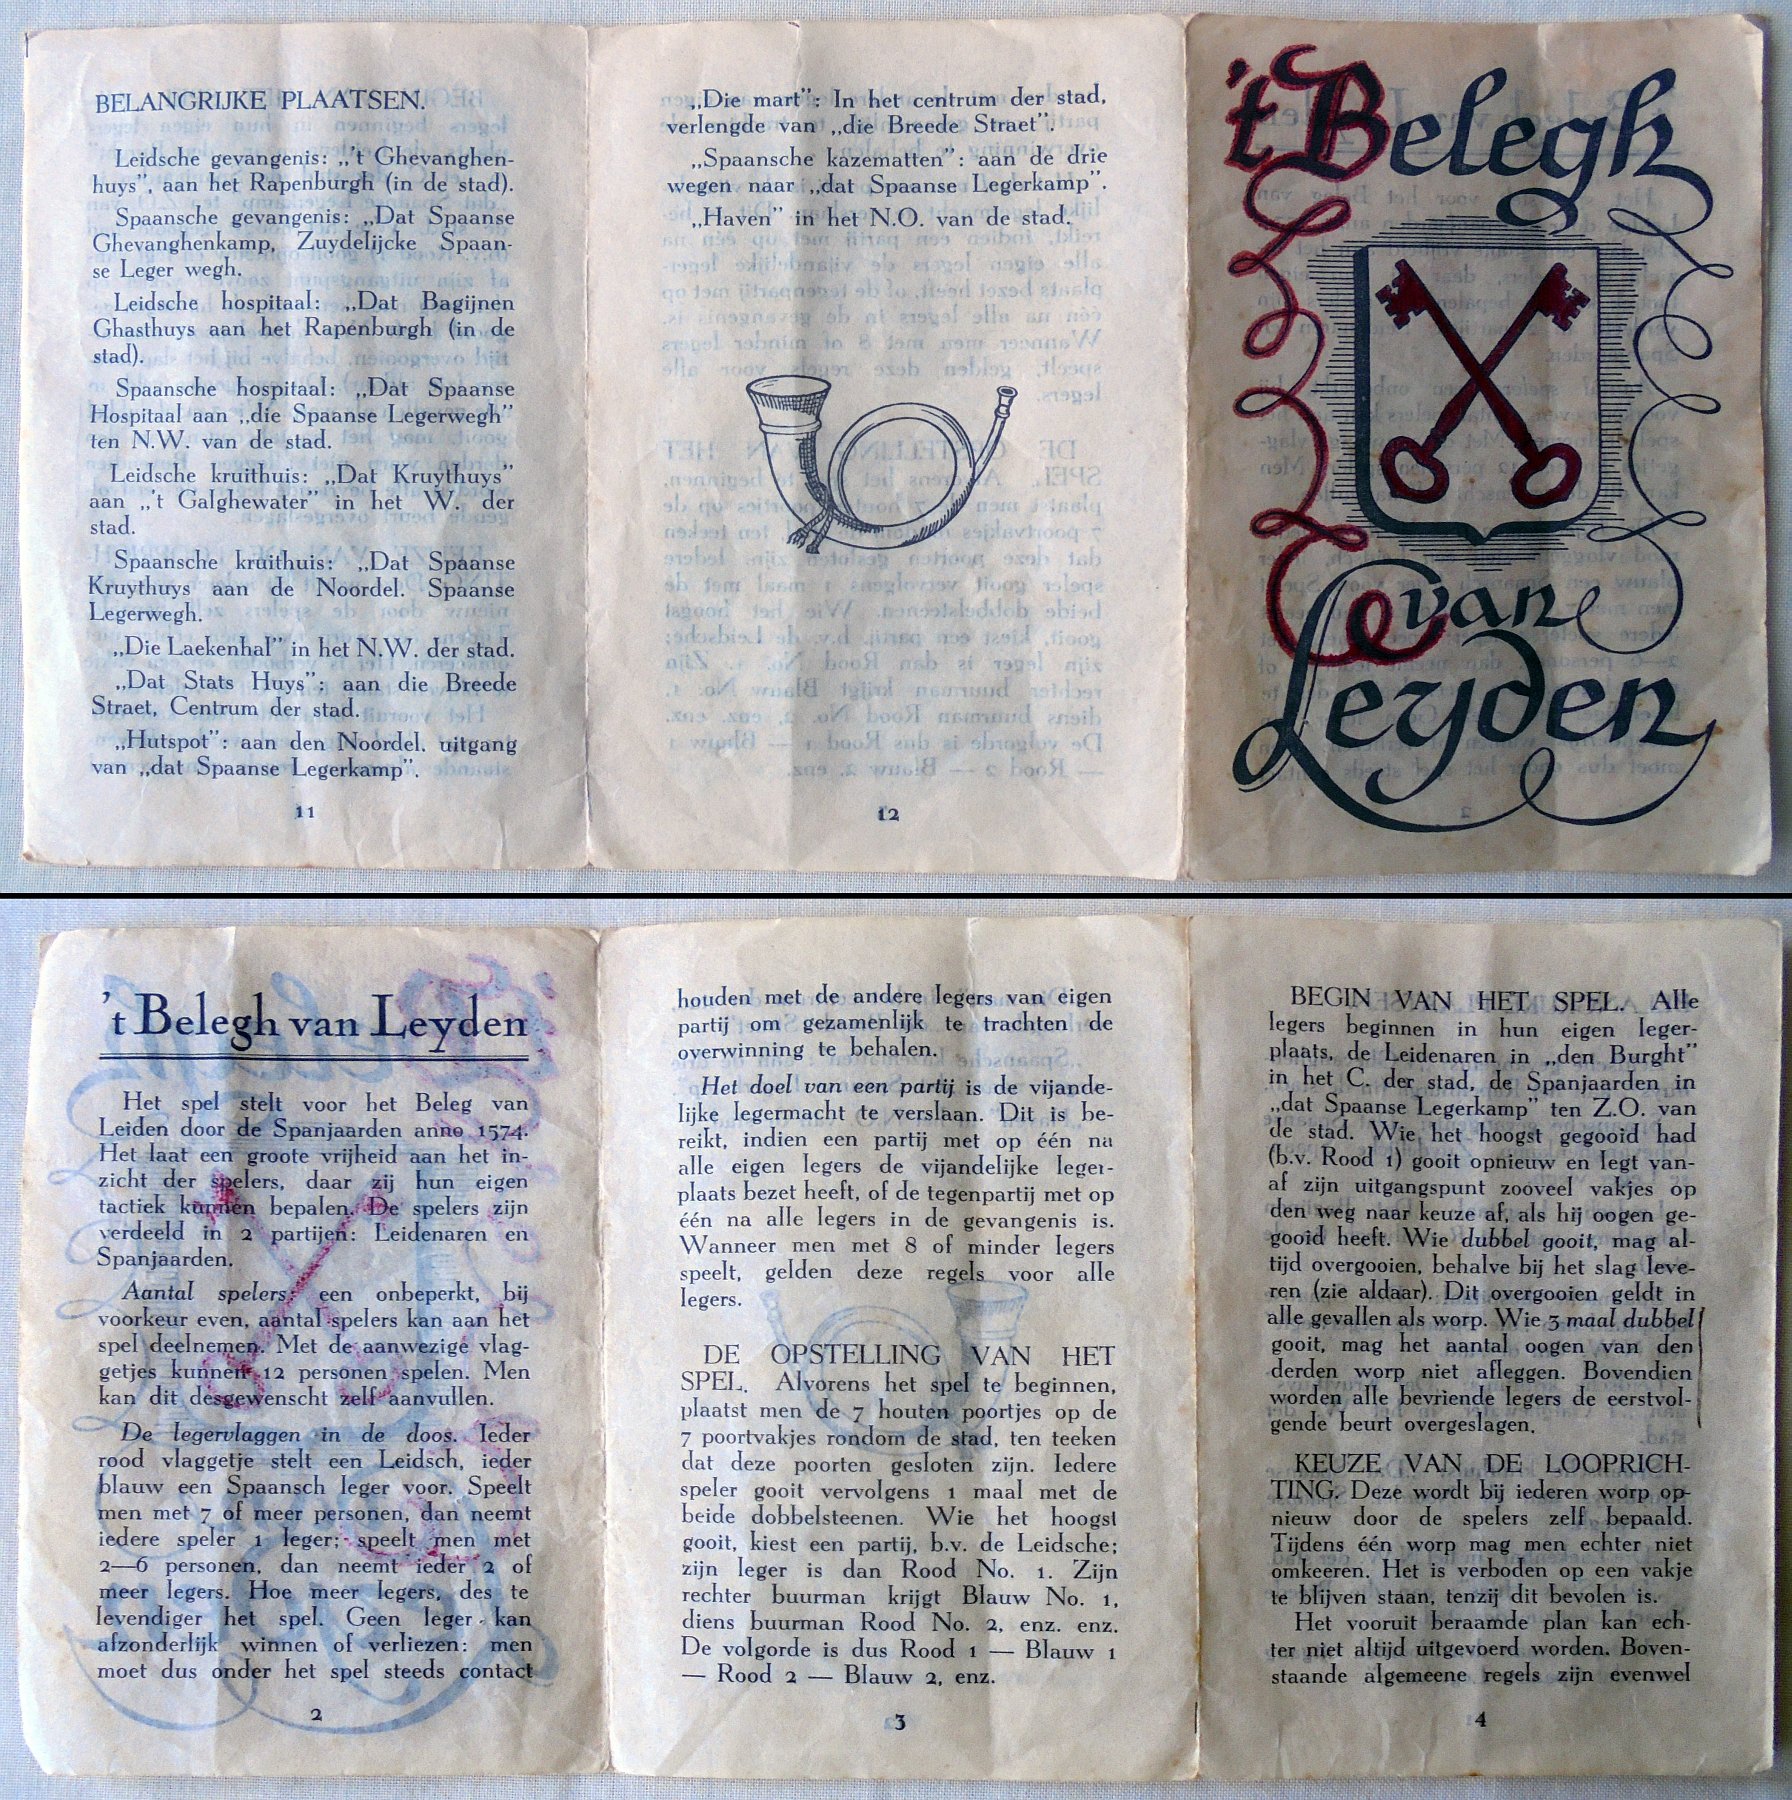 BELANGRIJKE PLAATSEN.
Leidsche gevangenis: „'t Ghevanghen-
huys", aan het Rapenburgh (in de stad).
Spaansche gevangenis: „Dat Spaanse
Ghevanghenkamp, Zuydelijcke Spaan-
se Leger wegh.
Leidsche hospitaal: „Dat Bagijnen
Ghasthuys aan het Rapenburgh (in de
stad).
Spaansche hospitaal: „Dat Spaanse
Hospitaal aan „die Spaanse Legerwegh"
ten N.W. van de stad.
Leidsche kruithuis: „Dat Kruythuys"
aan „'t Galghewater" in het W. der
stad.
Spaansche kruithuis: „Dat Spaanse
Kruythuys aan de Noordel. Spaanse
Legerwegh.
„Die Laekenhal" in het N.W. der stad.
„Dat Stats Huys": aan die Breede
Straet, Centrum der stad.
„Hutspot": aan den Noordel. uitgang
van „dat Spaanse Legerkamp".
11
„Die mart": In het centrum der stad,
verlengde van „die Breede Straet".
„Spaansche kazematten": aan de drie
wegen naar „dat Spaanse Legerkamp".
„Haven" in het N.O. van de stad.
12
't Belegh
van
Leyden
't Belegh van Leyden
Het spel stelt voor het Beleg van
Leiden door de Spanjaarden anno 1574.
Het laat een groote vrijheid aan het in-
zicht der spelers, daar zij hun eigen
tactiek kunnen bepalen. De spelers zijn
verdeeld in 2 partijen: Leidenaren en
Spanjaarden.
Aantal spelers: een onbeperkt, bij
voorkeur even, aantal spelers kan aan het
spel deelnemen. Met de aanwezige vlag-
getjes kunnen 12 personen spelen. Men
kan dit desgewenscht zelf aanvullen.
De legervlaggen in de doos. Ieder
rood vlaggetje stelt een Leidsch, ieder
blauw een Spaansch leger voor. Speelt
men met 7 of meer personen, dan neemt
iedere speler 1 leger; speelt men met
2—6 personen, dan neemt ieder 2 of
meer legers. Hoe meer legers, des te
levendiger het spel. Geen leger kan
afzonderlijk winnen of verliezen: men
moet dus onder het spel steeds contact
2
houden met de andere legers van eigen
partij om gezamenlijk te trachten de
overwinning te behalen.
Het doel van een partij is de vijande-
lijke legermacht te verslaan. Dit is be-
reikt, indien een partij met op één na
alle eigen legers de vijandelijke leger-
plaats bezet heeft, of de tegenpartij met op
één na alle legers in de gevangenis is.
Wanneer men met 8 of minder legers
speelt, gelden deze regels voor alle
legers.
DE OPSTELLING VAN HET
SPEL. Alvorens het spel te beginnen,
plaatst men de 7 houten poortjes op de
7 poortvakjes rondom de stad, ten teeken
dat deze poorten gesloten zijn. Iedere
speler gooit vervolgens 1 maal met de
beide dobbelsteenen. Wie het hoogst
gooit, kiest een partij, b.v. de Leidsche;
zijn leger is dan Rood No. 1. Zijn
rechter buurman krijgt Blauw No. 1,
diens buurman Rood No. 2, enz. enz.
De volgorde is dus Rood 1 — Blauw 1
— Rood 2 — Blauw 2, enz.
3
BEGIN VAN HET SPEL. Alle
legers beginnen in hun eigen leger-
plaats, de Leidenaren in „den Burght"
in het C. der stad, de Spanjaarden in
„dat Spaanse Legerkamp" ten Z.O. van
de stad. Wie het hoogst gegooid had
(b.v. Rood 1) gooit opnieuw en legt van-
af zijn uitgangspunt zooveel vakjes op
den weg naar keuze af, als hij oogen ge-
gooid heeft. Wie dubbel gooit, mag al-
tijd overgooien, behalve bij het slag leve-
ren (zie aldaar). Dit overgooien geldt in
alle gevallen als worp. Wie 3 maal dubbel
gooit, mag het aantal oogen van den
derden worp niet afleggen. Bovendien
worden alle bevriende legers de eerstvol-
gende beurt overgeslagen.
KEUZE VAN DE LOOPRICH-
TING. Deze wordt bij iederen worp op-
nieuw door de spelers zelf bepaald.
Tijdens één worp mag men echter niet
omkeeren. Het is verboden op een vakje
te blijven staan, tenzij dit bevolen is.
Het vooruit beraamde plan kan ech-
ter niet altijd uitgevoerd worden. Boven-
staande algemeene regels zijn evenwel
4